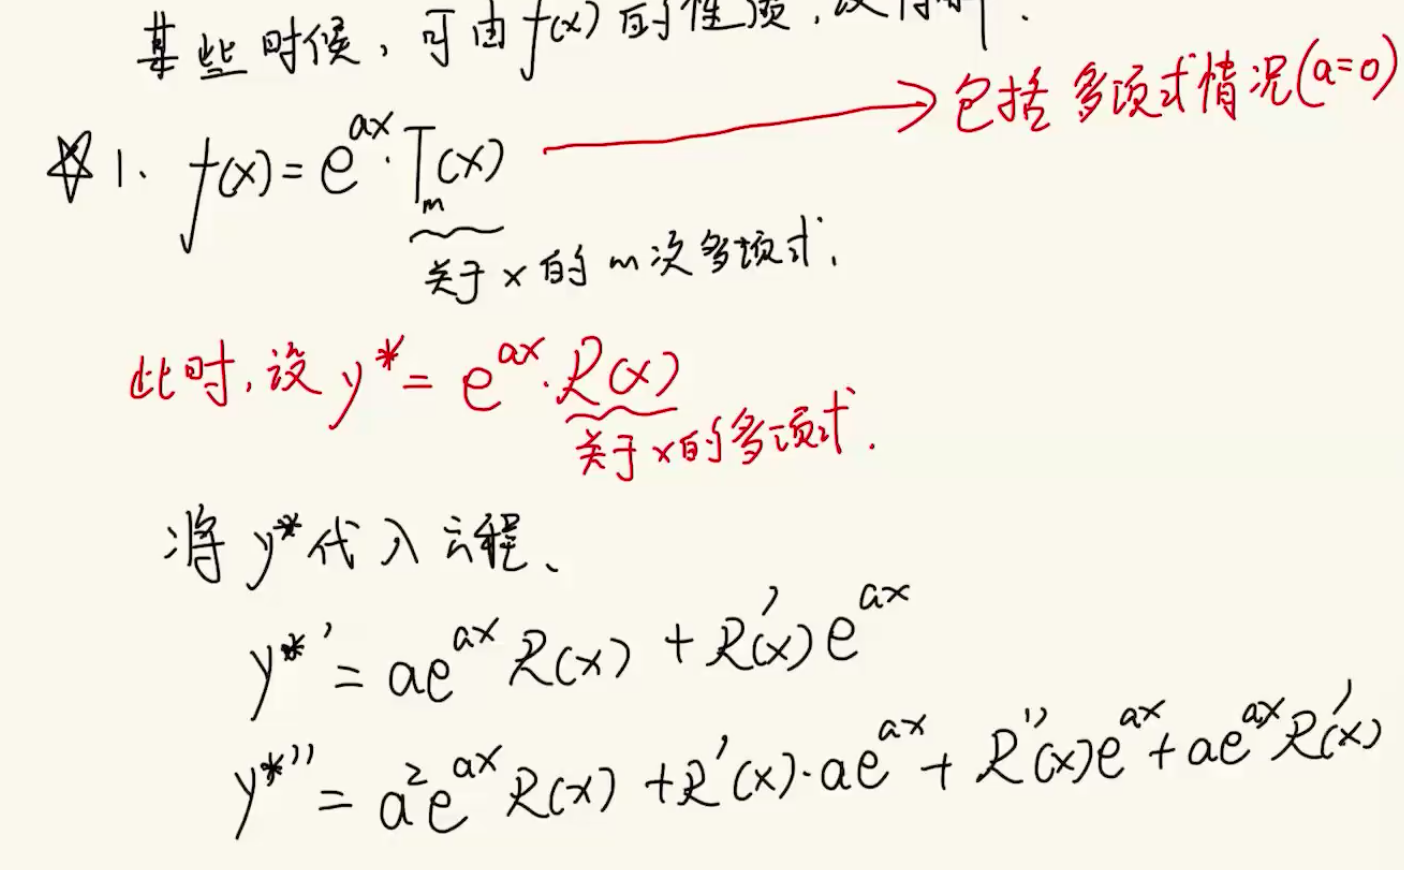 某些时候，可由f(x)的性质，
→包括多项式情况(a=0)
☆ 1. f(x) = e^{ax}·T_m(x)
关于x的m次多项式.
此时，设 y* = e^{ax}·R(x)
关于x的多项式.
将y*代入方程、
y*' = ae^{ax}R(x) + R'(x)e^{ax}
y*'' = a²e^{ax}R(x) + R'(x)·ae^{ax} + R''(x)e^{ax} + ae^{ax}R'(x)